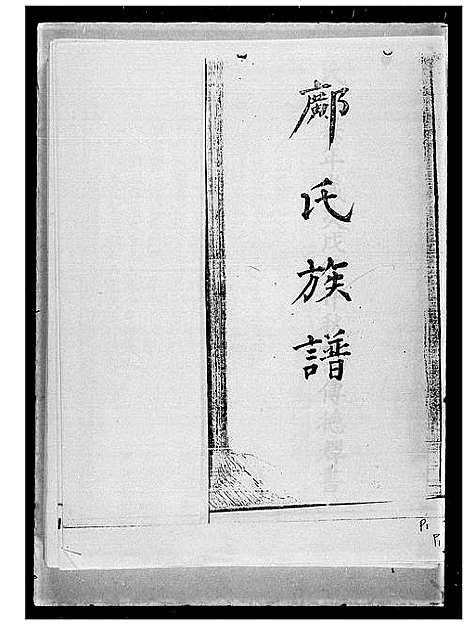 鄺氏族譜
P1
P1